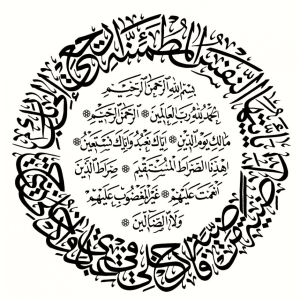 يَا أَيَّتُهَا النَّفْسُ الْمُطْمَئِنَّةُ ارْجِعِي إِلَى رَبِّكِ رَاضِيَةً مَرْضِيَّةً فَادْخُلِي فِي عِبَادِي وَادْخُلِي جَنَّتِي
بِسْمِ اللَّهِ الرَّحْمَنِ الرَّحِيمِ
الْحَمْدُ لِلَّهِ رَبِّ الْعَالَمِينَ ❁ الرَّحْمَنِ الرَّحِيمِ ❁
مَالِكِ يَوْمِ الدِّينِ ❁ إِيَّاكَ نَعْبُدُ وَإِيَّاكَ نَسْتَعِينُ ❁
اهْدِنَا الصِّرَاطَ الْمُسْتَقِيمَ ❁ صِرَاطَ الَّذِينَ
أَنْعَمْتَ عَلَيْهِمْ ❁ غَيْرِ الْمَغْضُوبِ عَلَيْهِمْ
❁ وَلَا الضَّالِّينَ ❁